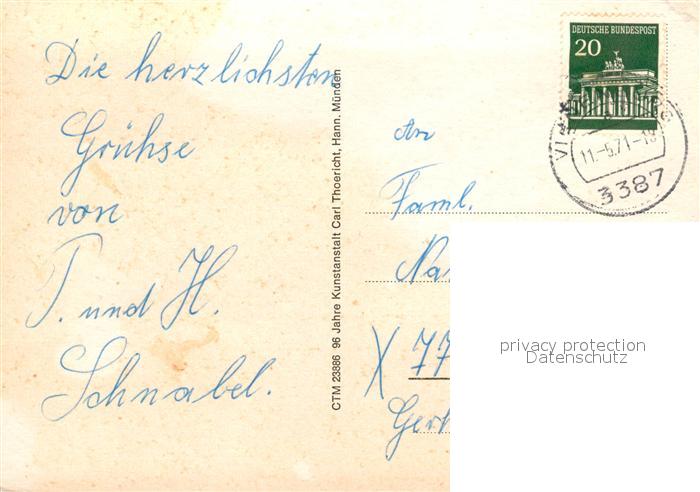 Die herzlichsten
Grühse
von
T. und H.
Schnabel.
CTM 23386 96 Jahre Kunstanstalt Carl Thoericht, Hann. Münden
DEUTSCHE BUNDESPOST
20
11.-5.71-19
3387
An
Faml.
privacy protection
Datenschutz